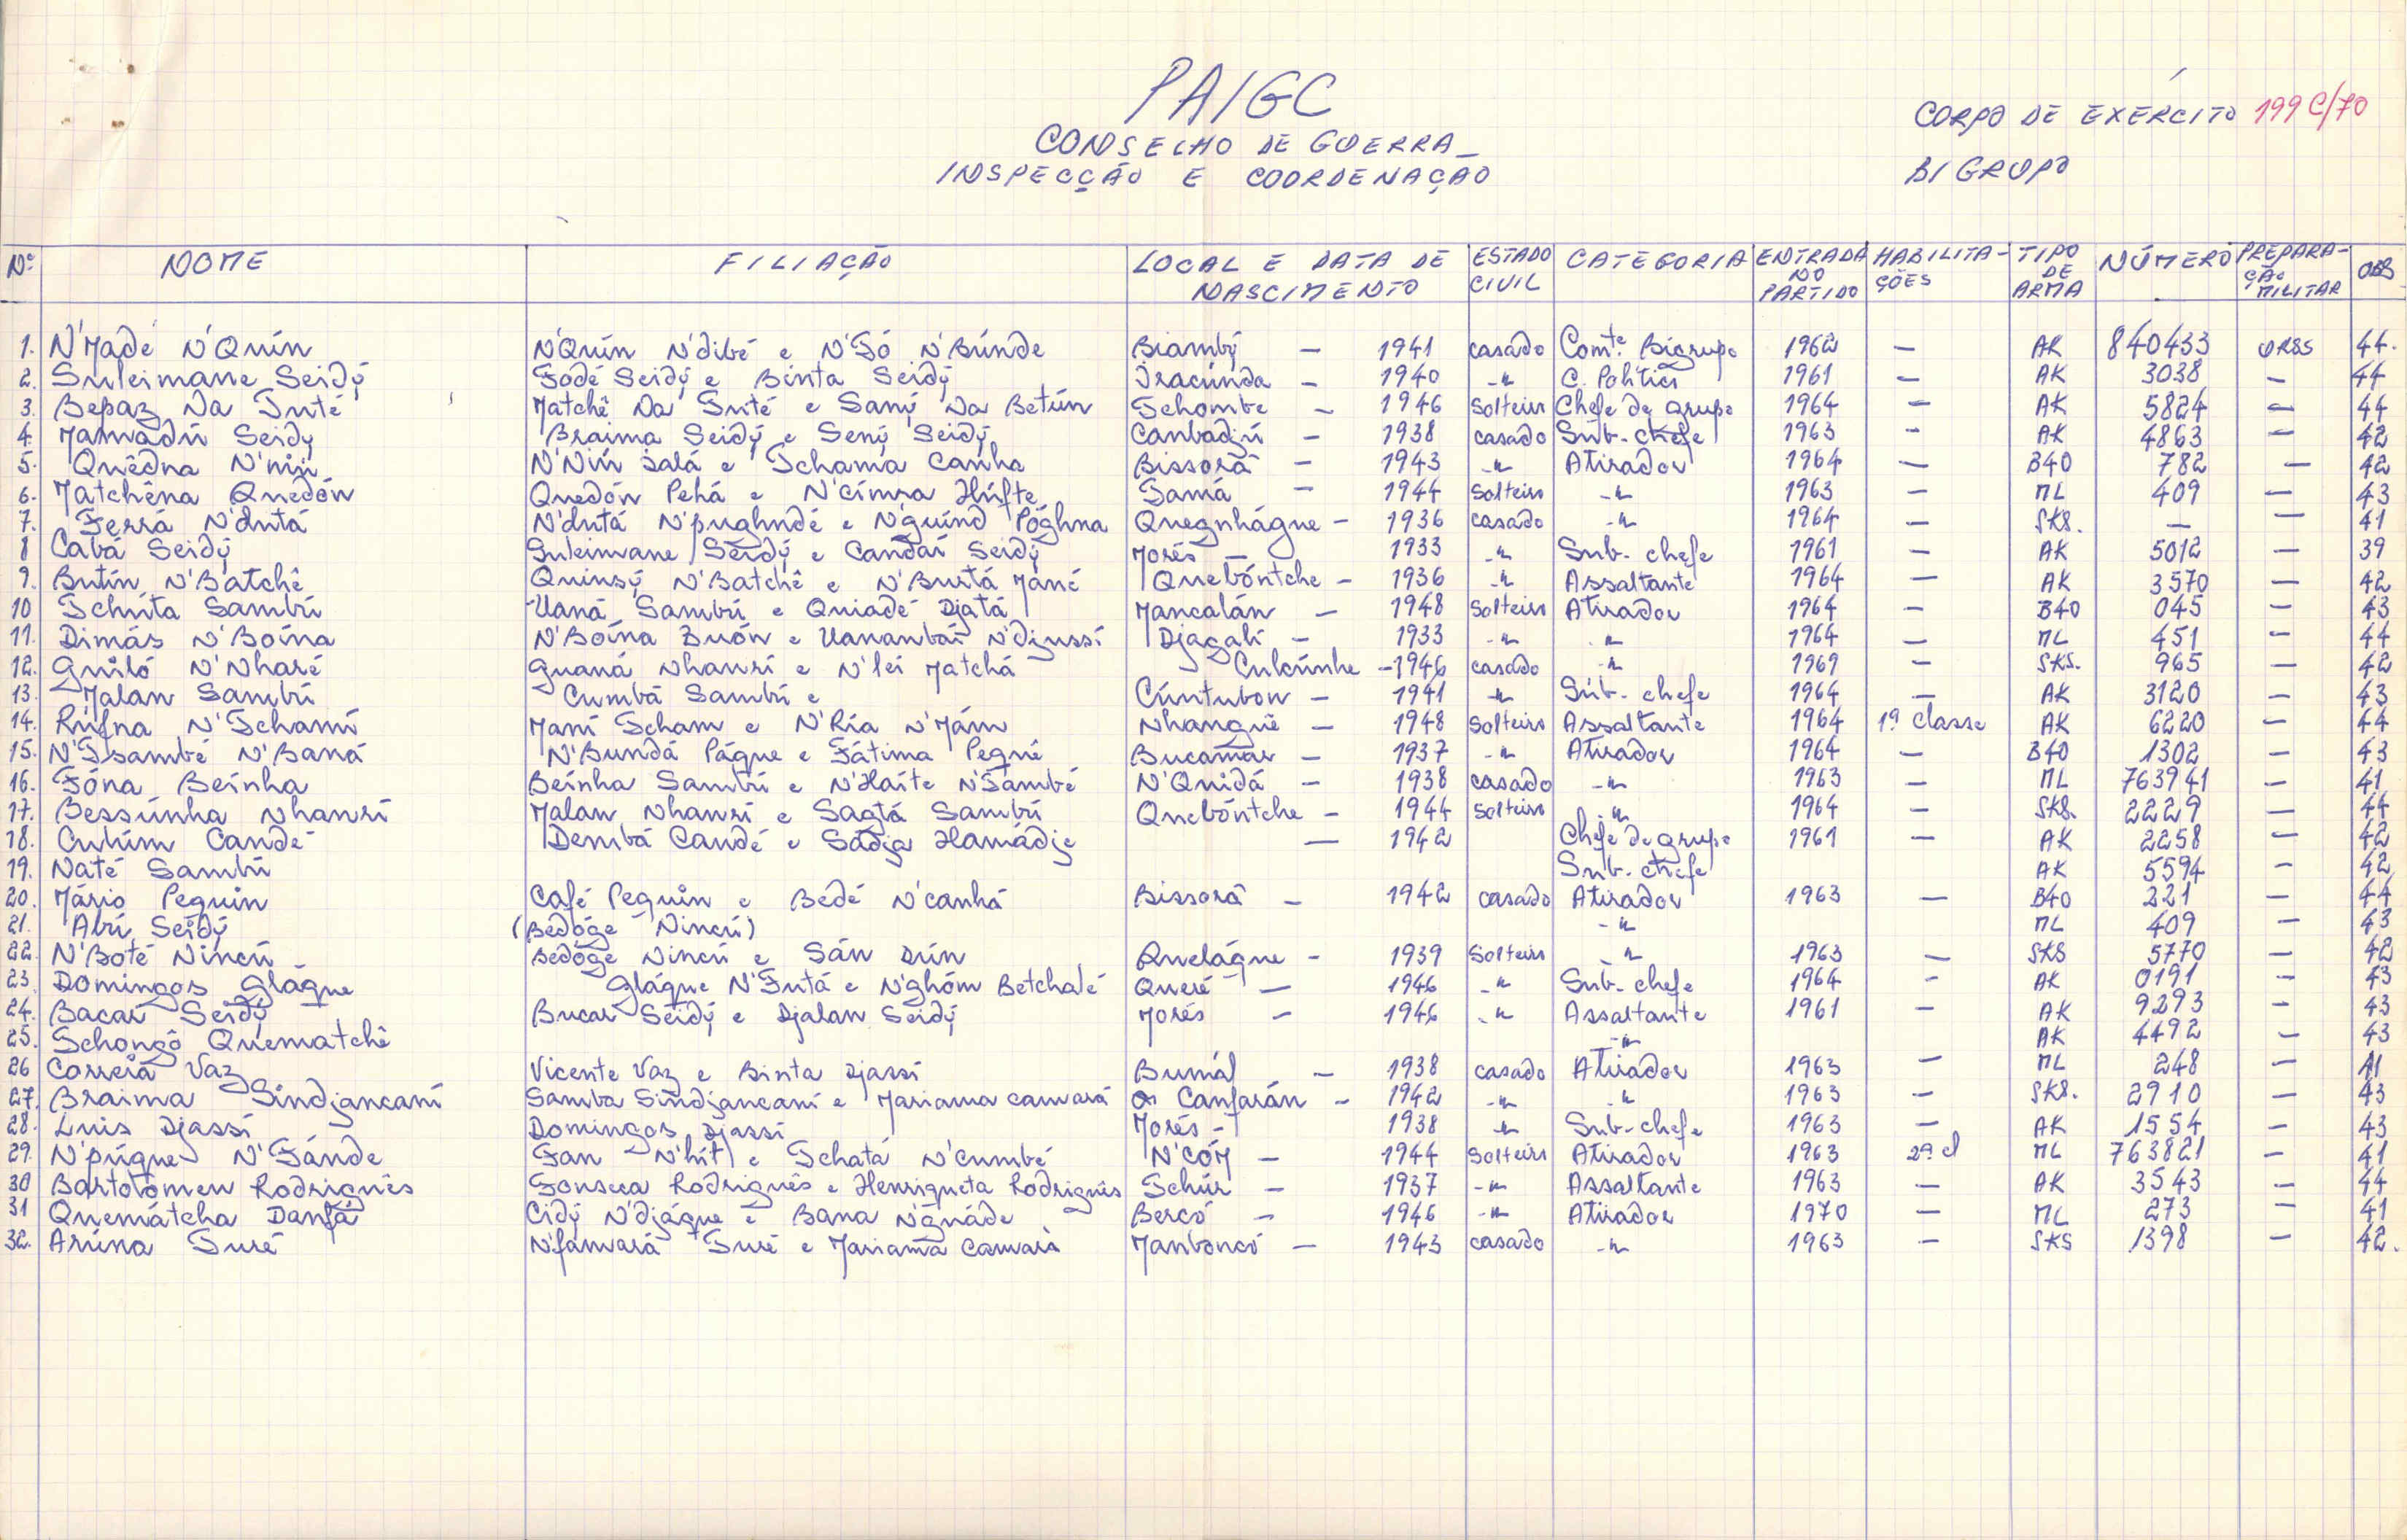 PAIGC
CONSELHO DE GUERRA
INSPECÇÃO E COORDENAÇÃO
CORPO DE EXÉRCITO 199 C/70
BI GRUPO
Nº NOME FILIAÇÃO LOCAL E DATA DE NASCIMENTO ESTADO CIVIL CATEGORIA ENTRADA NO PARTIDO HABILITAÇÕES TIPO DE ARMA NÚMERO PREPARAÇÃO MILITAR OBS
1. N'Madé N'Quín N'Quín N'dibé e N'Fó N'Búnde Biambý — 1941 casado Comte. Bigrupo 1962 — AK 840433 URSS 44.
2. Suleimane Seidý Fodé Seidý e Binta Seidý Iracúnda — 1940 -"- C. Político 1961 — AK 3038 — 44
3. Bepaz Na Tuté Matchê Na Tuté e Saný Na Betún Tchombe — 1946 solteiro Chefe de grupo 1964 — AK 5824 — 44
4. Mamadú Seidy Braima Seidý e Sený Seidý Canbadjú — 1938 casado Sub-chefe 1963 — AK 4863 — 42
5. Quêdna N'nin N'Nin Salá e Tchama Canha Bissorã — 1943 -"- Atirador 1964 — B40 782 — 42
6. Matchêna Quedón Quedón Pehá e N'címra Húfte Tamá — 1944 solteiro -"- 1963 — ML 409 — 43
7. Ferrá N'dutá N'dutá N'pughndé e N'guínd Póghna Quegnhágue — 1936 casado -"- 1964 — SKS. — — 41
8 Cabá Seidý Suleimane Seidý e Candaí Seidý Morés — 1933 -"- Sub-chefe 1961 — AK 5012 — 39
9. Butín N'Batchê Quinsý N'Batchê e N'Bustá Mané Quebóntche — 1936 -"- Assaltante 1964 — AK 3570 — 42
10 Tchúta Sambú Uaná Sambú e Quiadé Djatá Mancalán — 1948 solteiro Atirador 1964 — B40 045 — 43
11. Dimás N'Boína N'Boína Buón e Uanambaí N'djussí Djagalí — 1933 -"- -"- 1964 — ML 451 — 44
12. Guiló N'Nharé Guaná Nhanrí e N'lei Matchá Culcúnhe — 1946 casado -"- 1969 — SKS. 965 — 42
13. Malan Sambú Cumbá Sambú e Cúntubon — 1941 -"- Sub-chefe 1964 — AK 3120 — 43
14. Rúfna N'Tchamí Maní Tcham e N'Ría N'Mám Nhanguê — 1948 solteiro Assaltante 1964 1ª Classe AK 6220 — 44
15. N'Tsambé N'Baná N'Bundá Págue e Fátima Pegué Bucamar — 1937 -"- Atirador 1964 — B40 1302 — 43
16. Fóna Beínha Beínha Sambú e N'Haíte N'Sambé N'Quidá — 1938 casado -"- 1963 — ML 763941 — 41
17. Bessúnha Nhanrí Malan Nhanrí e Sagtá Sambú Quebóntche — 1944 solteiro -"- 1964 — SKS. 2229 — 44
18. Cutúm Candé Dembá Candé e Sádja Hamádje — 1942 Chefe de grupo 1961 — AK 2258 — 42
19. Naté Sambú Sub-chefe AK 5594 — 42
20. Mário Pequin Café Pequin e Bedé N'canhá Bissorã — 1942 casado Atirador 1963 — B40 221 — 44
21. Abú Seidý (Bedóge Nincú) -"- ML 409 — 43
22. N'Boté Nincú Bedóge Nincú e Sán Dún Quelágue — 1939 solteiro -"- 1963 — SKS 5770 — 42
23. Domingos Glágue Glágue N'Tutá e N'ghóm Betchalé Queré — 1946 -"- Sub-chefe 1964 — AK 0191 — 43
24. Bacar Seidý Bucar Seidý e Djalan Seidý Morés — 1946 -"- Assaltante 1961 — AK 9293 — 43
25. Tchongô Quematchê -"- AK 4492 — 43
26 Correia Vaz Vicente Vaz e Binta Djassí Bumál — 1938 casado Atirador 1963 — ML 248 — 41
27. Braima Sindjancaní Samba Sindjancaní e Mariama Camará Canfarán — 1942 -"- -"- 1963 — SKS. 2910 — 43
28. Luis Djassí Domingos Djassí Morés — 1938 -"- Sub-chefe 1963 — AK 1554 — 43
29. N'púgue N'Fánde Fan N'hít e Tchatá N'cumbé N'CÓM — 1944 solteiro Atirador 1963 2ª cl ML 763821 — 41
30 Bartolomeu Rodriguês Fonseca Rodriguês e Henriqueta Rodriguês Tchúr — 1937 -"- Assaltante 1963 — AK 3543 — 44
31 Quemátcha Danfá Cidý N'djágue e Bana N'gnáde Bercó — 1946 -"- Atirador 1970 — ML 273 — 41
32. Arúna Turé N'famará Turé e Mariamã Camará Manboncó — 1943 casado -"- 1963 — SKS 1398 — 42.